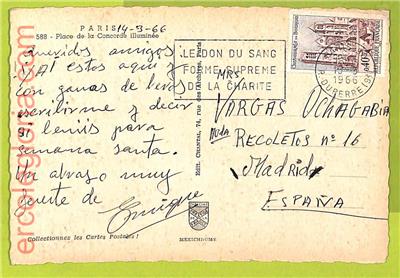 PARIS 14-3-66
588 - Place de la Concorde illuminée
Queridos amigos:
YA estoy aquí y
con ganas de
escribirme y decir
si venís para
semana santa.
Un abrazo muy
fuerte de
Enrique
Collectionnez les Cartes Postales !
MEXICHROME
EDIT. CHANTAL, 74, rue des Archives, Paris
LE DON DU SANG
FORME SUPREME
DE LA CHARITE
1966
MRS
VARGAS Ochagabia
RECOLETOS nº 16
Madrid
ESPAÑA
ercolegloria.com